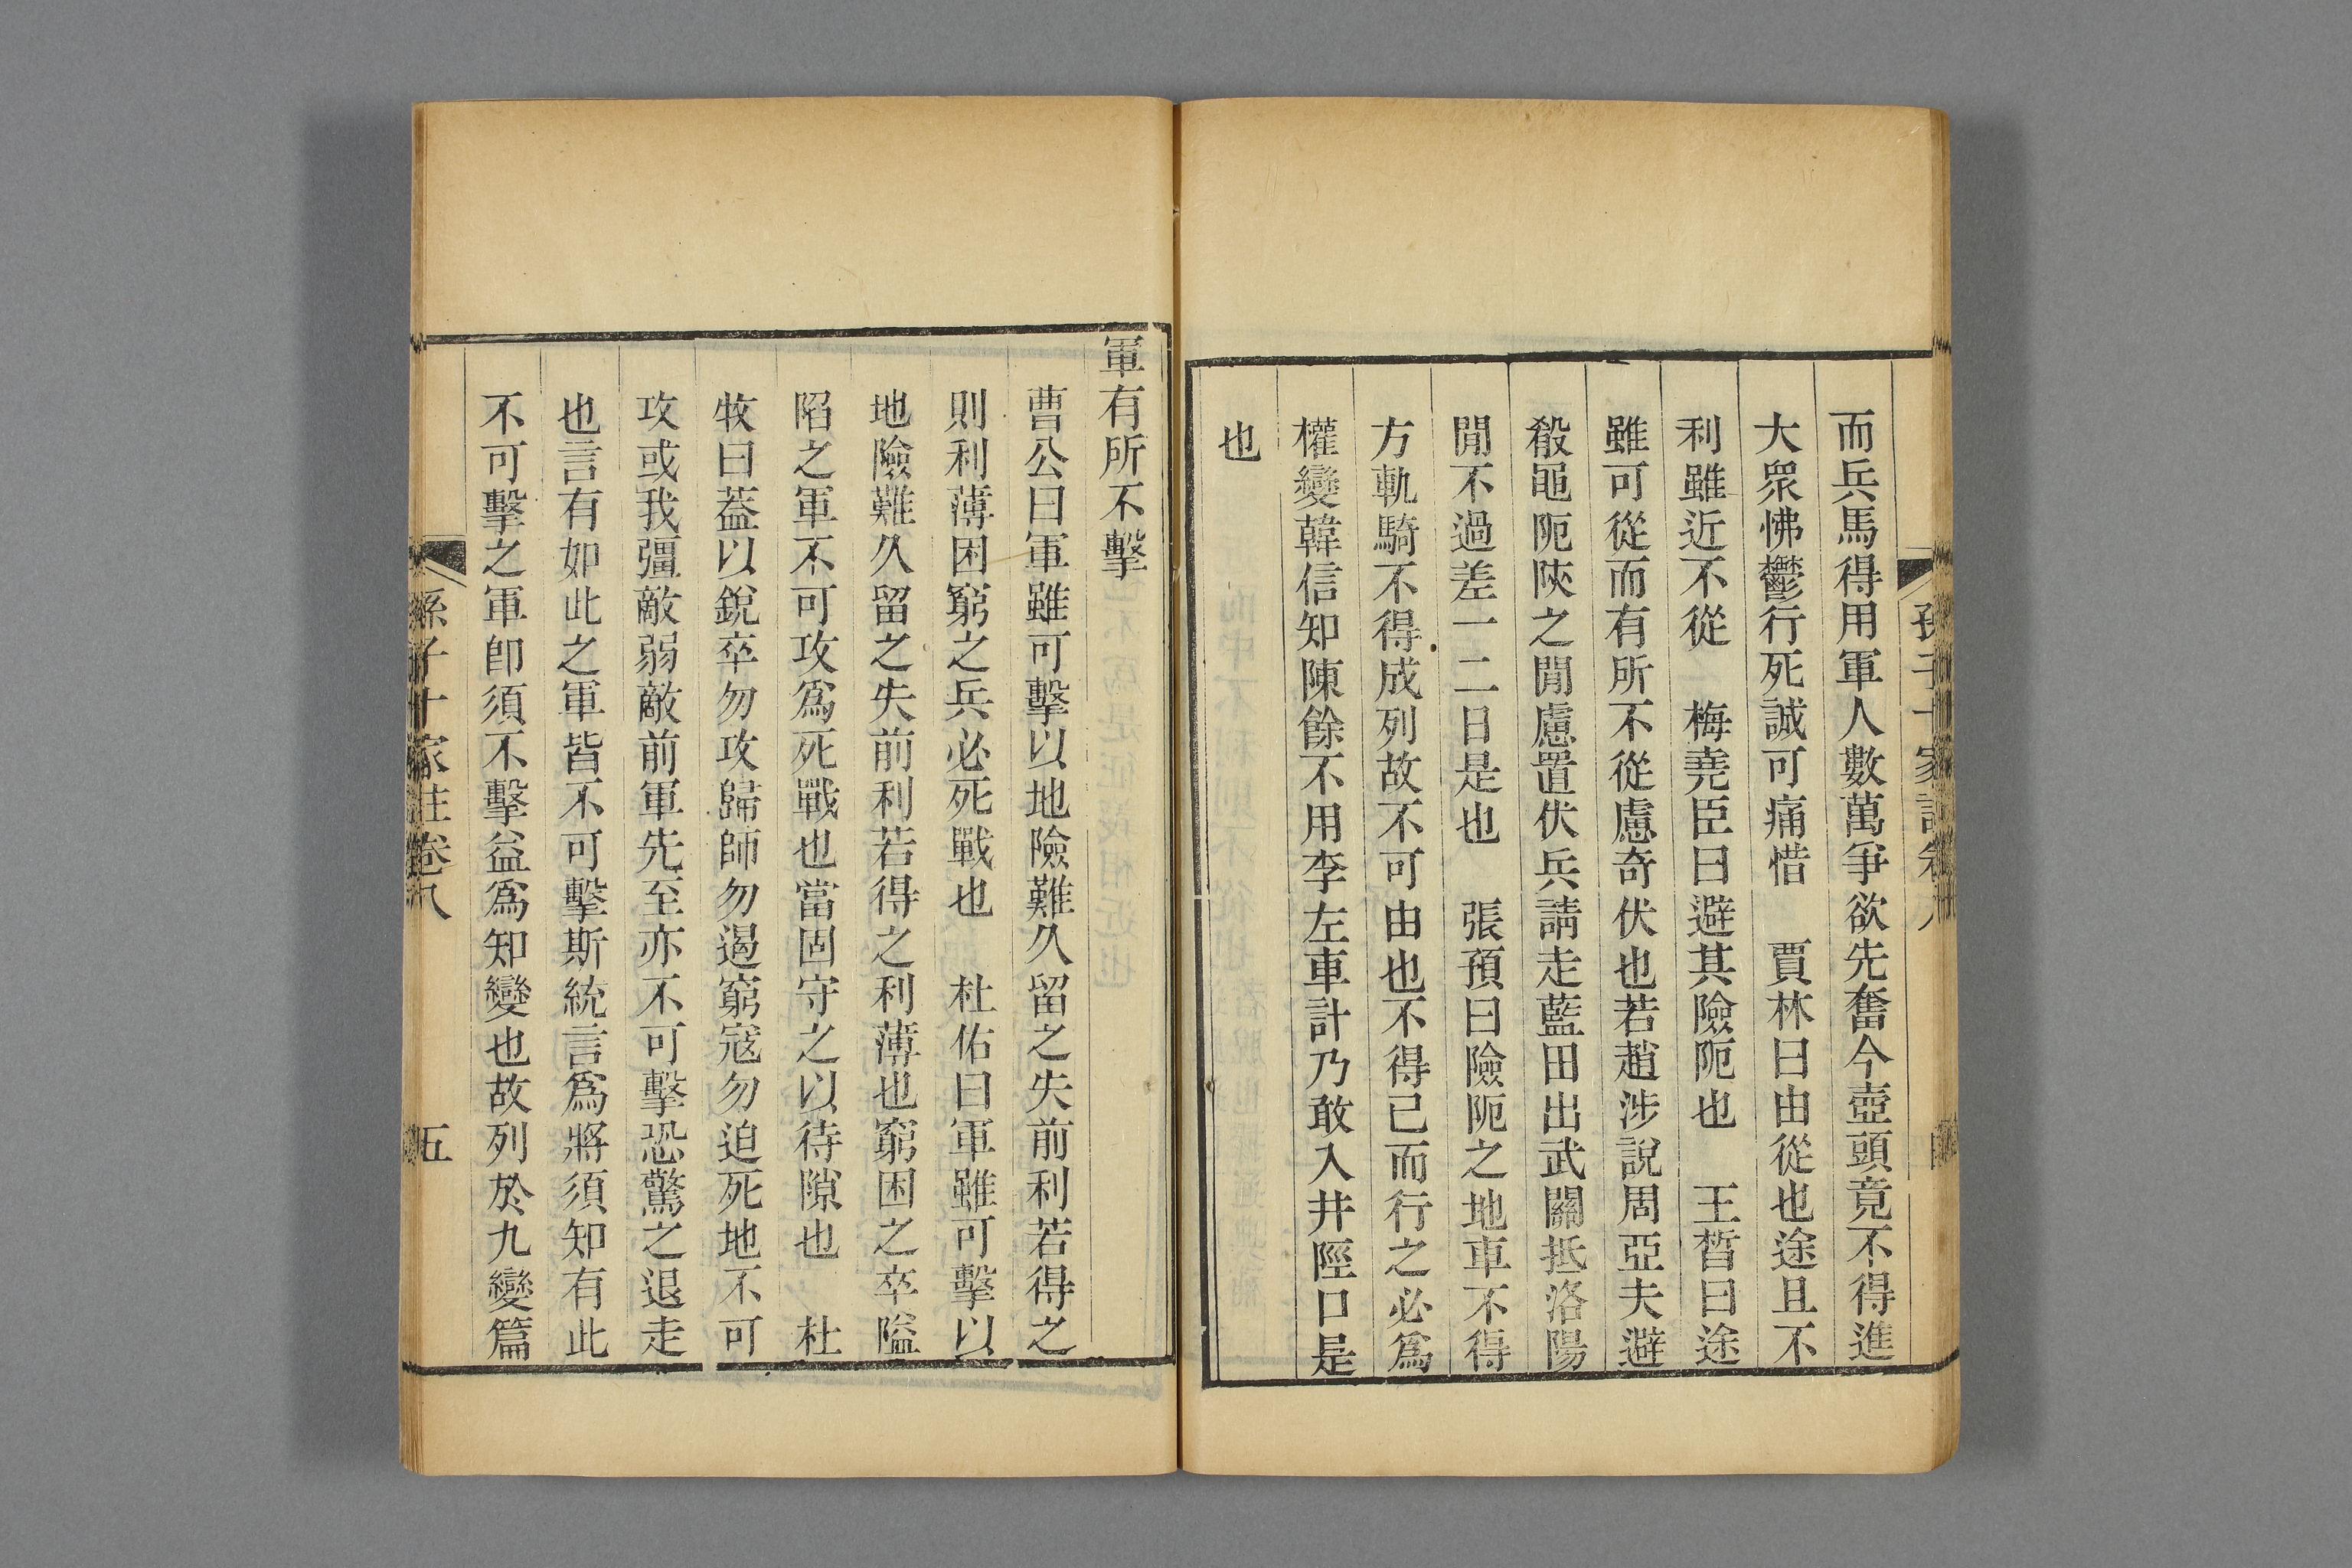 而兵馬得用軍人數萬爭欲先奮今壺頭竟不得進
大衆怫鬱行死誠可痛惜　賈林曰由從也途且不
利雖近不從　梅堯臣曰避其險阨也　王晳曰途
雖可從而有所不從慮奇伏也若趙涉說周亞夫避
殽黽阨陜之閒慮置伏兵請走藍田出武關抵洛陽
閒不過差一二日是也　張預曰險阨之地車不得
方軌騎不得成列故不可由也不得已而行之必爲
權變韓信知陳餘不用李左車計乃敢入井陘口是
也
軍有所不擊
曹公曰軍雖可擊以地險難久留之失前利若得之
則利薄困窮之兵必死戰也　杜佑曰軍雖可擊以
地險難久留之失前利若得之利薄也窮困之卒隘
陷之軍不可攻爲死戰也當固守之以待隙也　杜
牧曰蓋以銳卒勿攻歸師勿遏窮寇勿迫死地不可
攻或我彊敵弱敵前軍先至亦不可擊恐驚之退走
也言有如此之軍皆不可擊斯統言爲將須知有此
不可擊之軍卽須不擊益爲知變也故列於九變篇
孫子十家註卷八　五